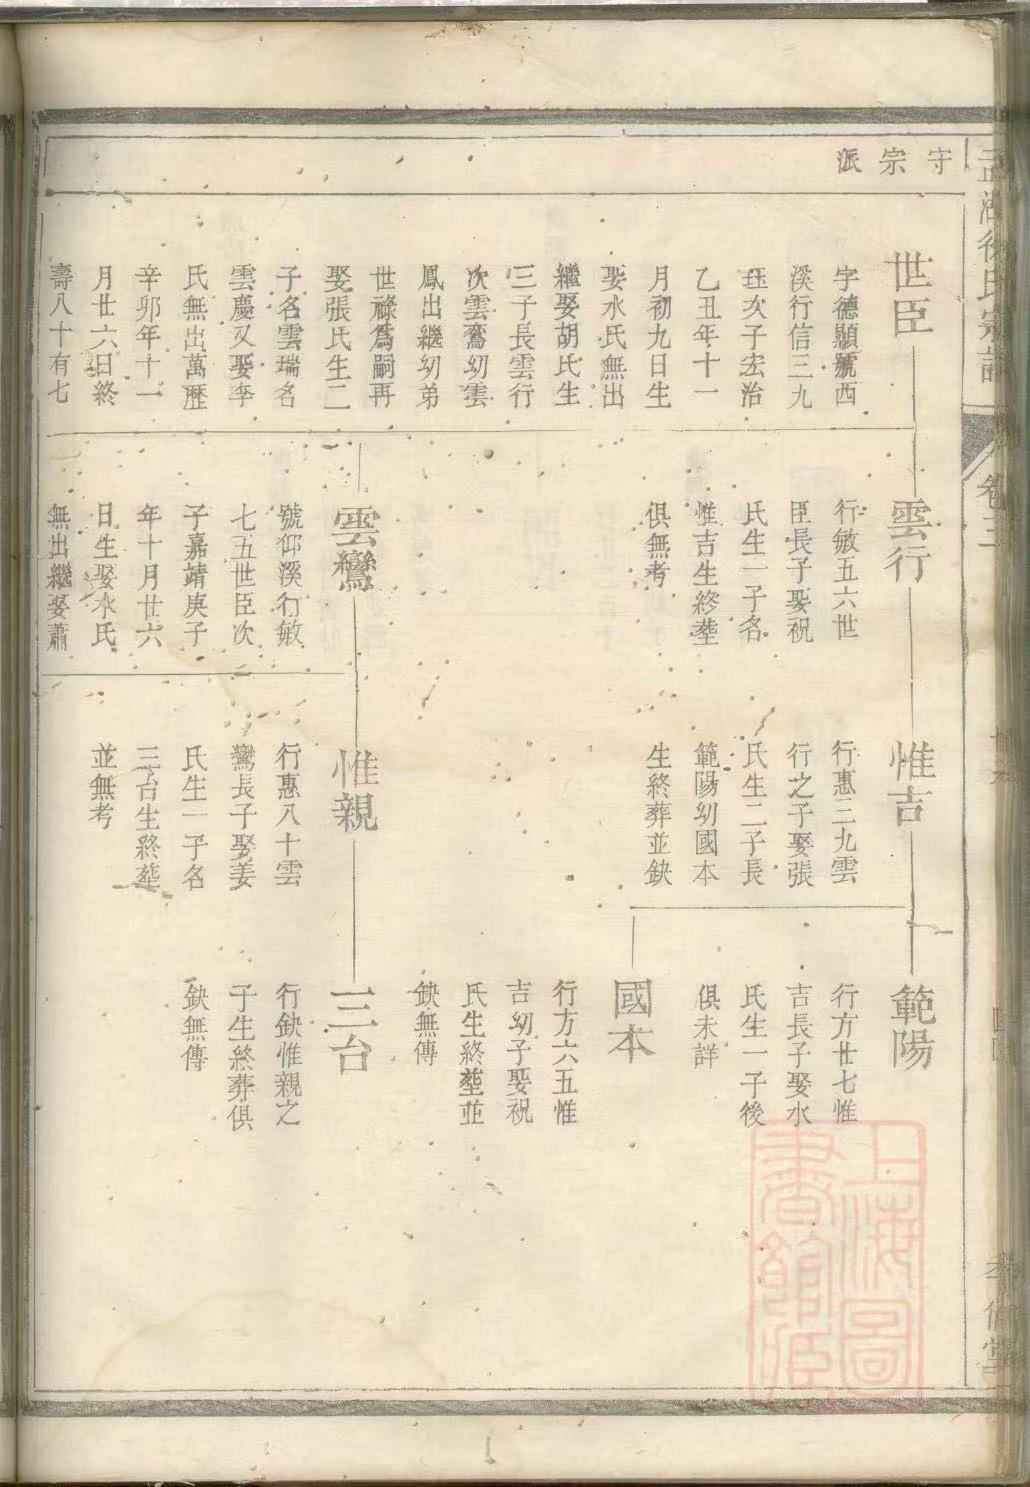 守宗派
世臣
字德顯號西
溪行信三九
珏次子宏治
乙丑年十一
月初九日生
娶水氏無出
繼娶胡氏生
三子長雲行
次雲鸞幼雲
鳳出繼幼弟
世祿爲嗣再
娶張氏生二
子名雲瑞名
雲慶又娶李
氏無出萬歷
辛卯年十一
月廿六日終
壽八十有七
雲行
行敏五六世
臣長子娶祝
氏生一子名
惟吉生終塟
俱無考
雲鸞
號仰溪行敏
七五世臣次
子嘉靖庚子
年十月廿六
日生娶水氏
無出繼娶蕭
惟吉
行惠三九雲
行之子娶張
氏生二子長
範陽幼國本
生終葬並缺
惟親
行惠八十雲
鸞長子娶姜
氏生一子名
三台生終塟
並無考
範陽
行方廿七惟
吉長子娶水
氏生一子後
俱未詳
國本
行方六五惟
吉幼子娶祝
氏生終塟並
缺無傳
三台
行缺惟親之
子生終葬俱
缺無傳
氏宗譜
卷三
上海圖
書館藏